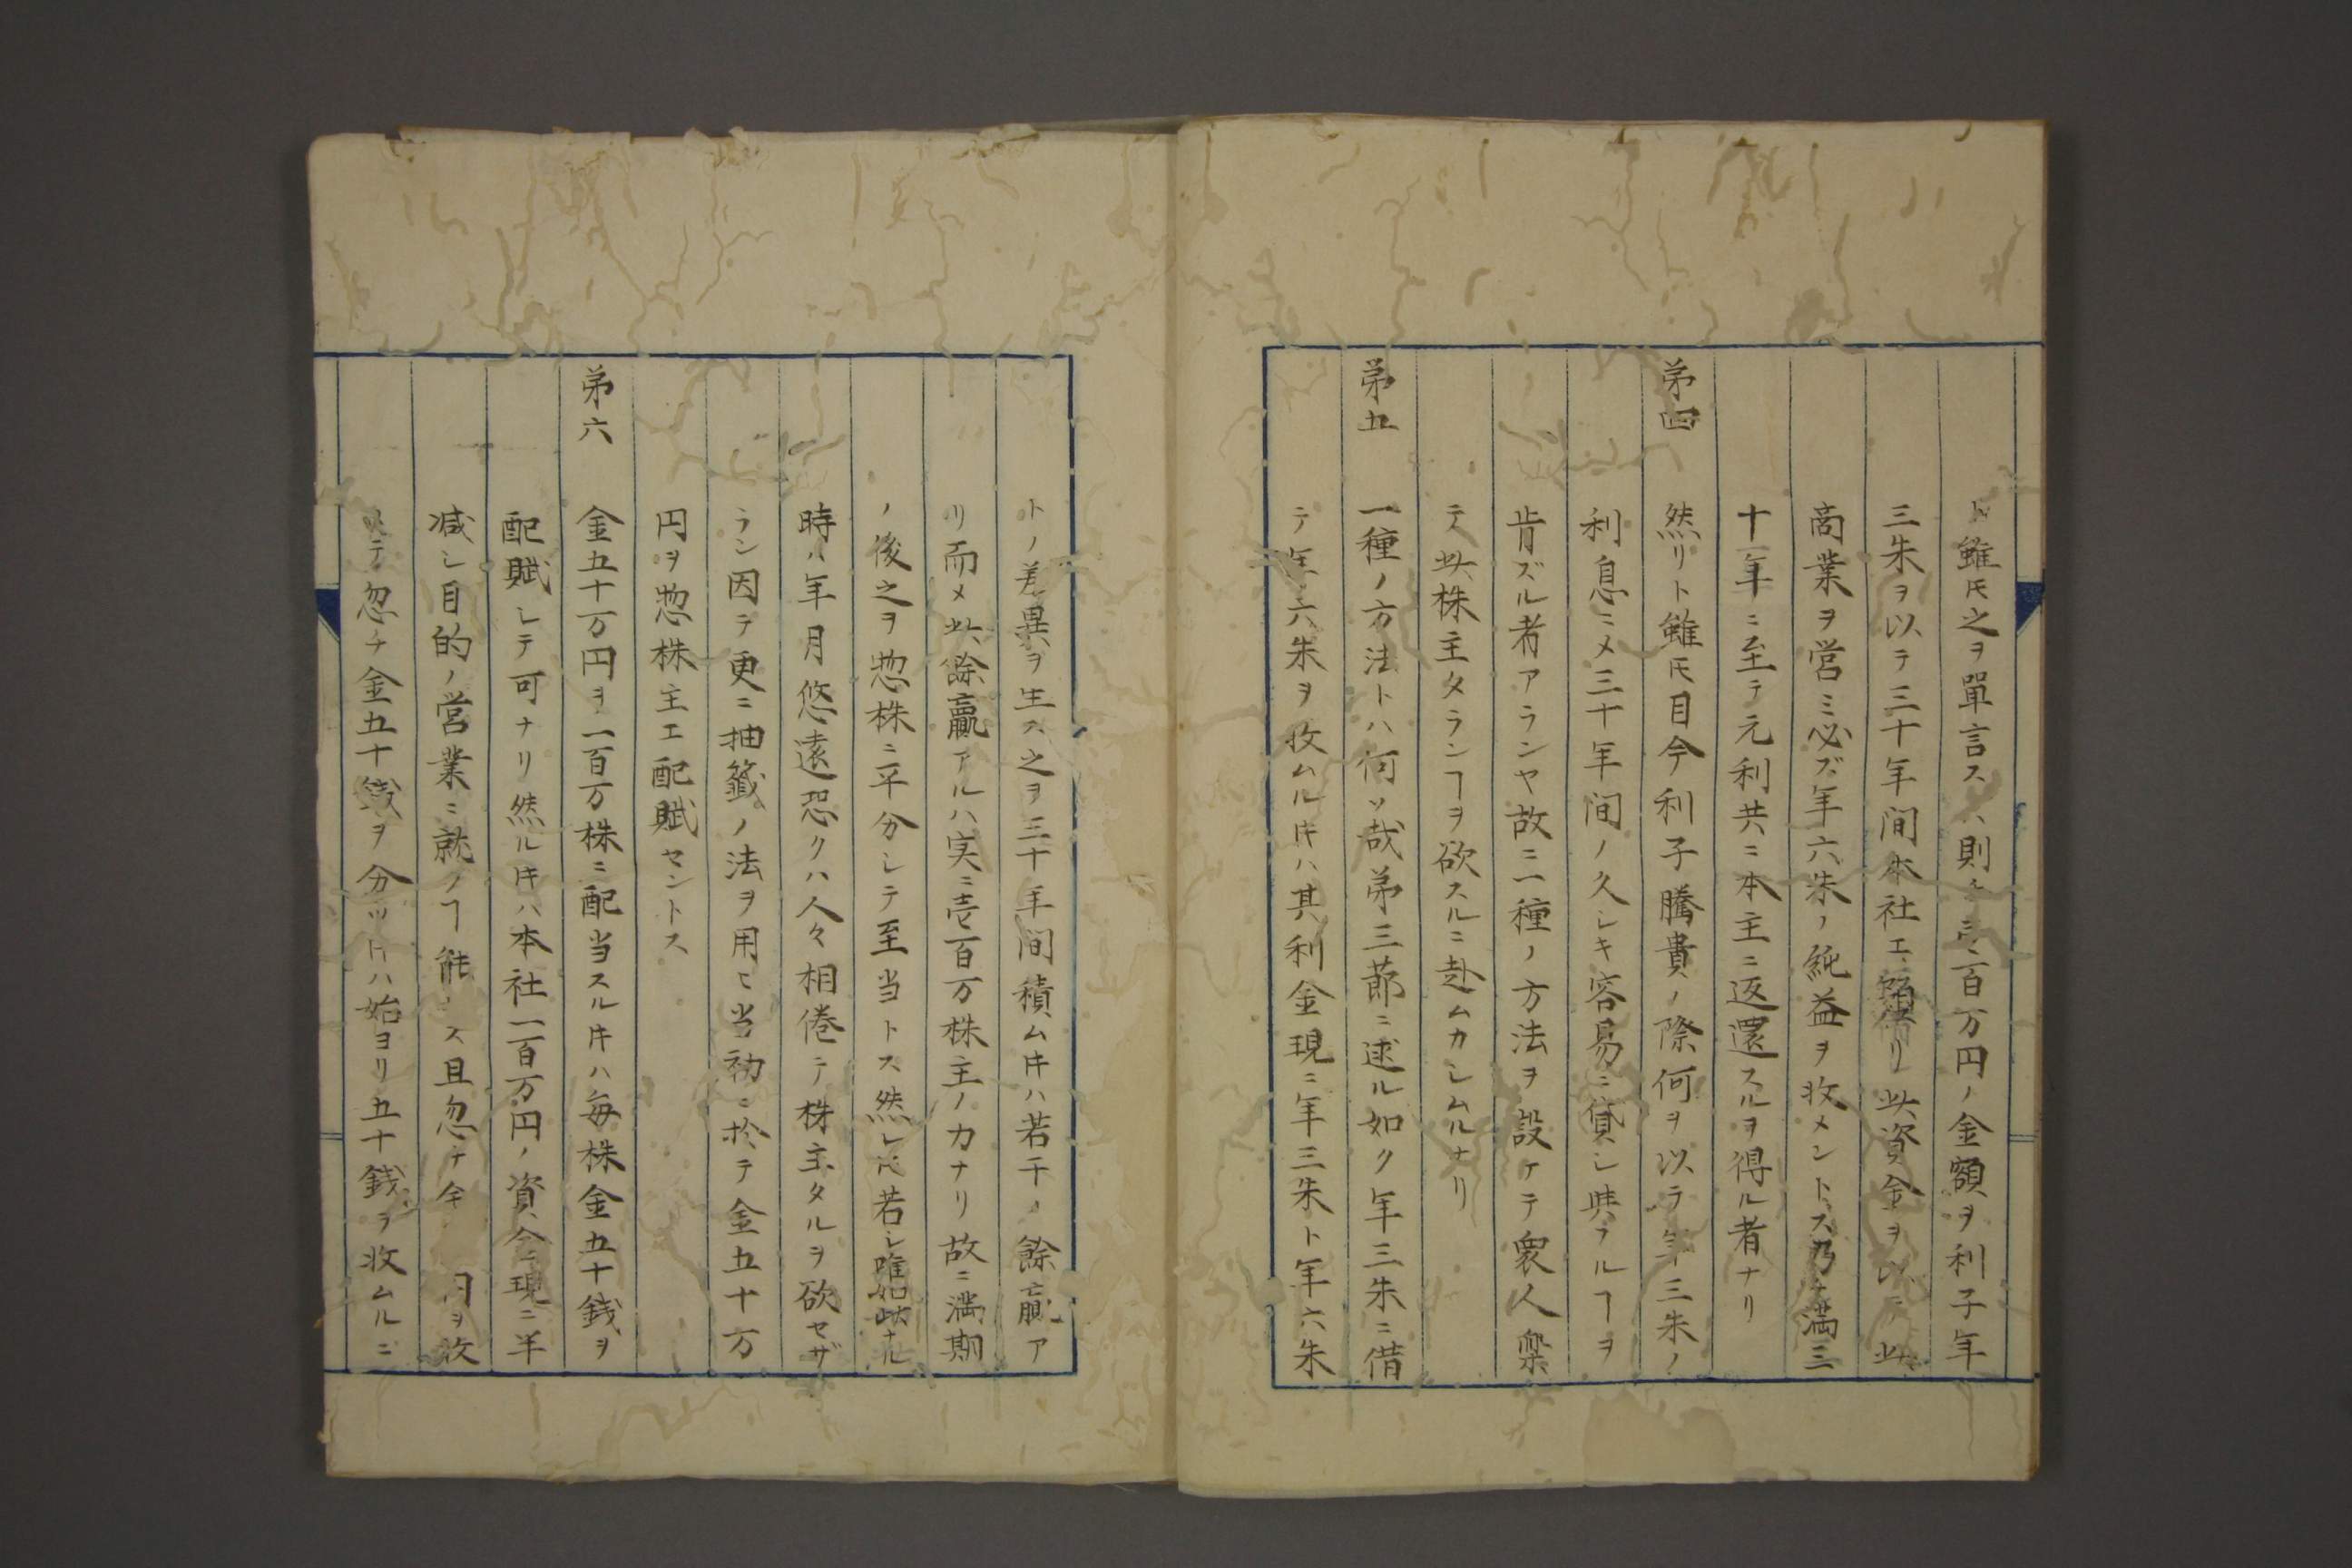 ト雖𪜈之ヲ單言スハ則チ壱百万円ノ金額ヲ利子年
三朱ヲ以テ三十年间本社エ預リ此資金ヲ以テ此
商業ヲ営ミ必ズ年六朱ノ純益ヲ收メントス乃チ満三
十年ニ至テ元利共ニ本主ニ返還スルヲ得ル者ナリ
第四 然リト雖𪜈目今利子騰貴ノ際何ヲ以テ年三朱ノ
利息ニメ三十年间ノ久シキ容易ニ貸シ與フルヿヲ
肯ズル者アランヤ故ニ一種ノ方法ヲ設ケテ衆人樂
テ此株主タランヿヲ欲スルニ赴ムカシムルナリ
第五 一種ノ方法トハ何ソ哉第三節ニ述ル如ク年三朱ニ借
テ年六朱ヲ收ムル𪜀ハ其利金現ニ年三朱ト年六朱
トノ差異ヲ生ス之ヲ三十年间積ム𪜀ハ若干ノ餘贏ア
リ而メ此餘贏アルハ実ニ壱百万株主ノ力ナリ故ニ満期
ノ後之ヲ惣株ニ平分シテ至当トス然レ𪜈若シ唯如此ナル
時ハ年月悠遠恐クハ人々相倦テ株主タルヲ欲セザ
ラン因テ更ニ抽籤ノ法ヲ用ヒ当初ニ於テ金五十万
円ヲ惣株主エ配賦セントス
第六 金五十万円ヲ一百万株ニ配当スル𪜀ハ毎株金五十銭ヲ
配賦シテ可ナリ然ル𪜀ハ本社一百万円ノ資金ニ現ニ半
減シ目的ノ営業ニ就ノヿ能ハス且忽チ金 円ヲ收
テ忽チ金五十銭ヲ分ツ𪜀ハ始ヨリ五十銭ヲ收ムルニ